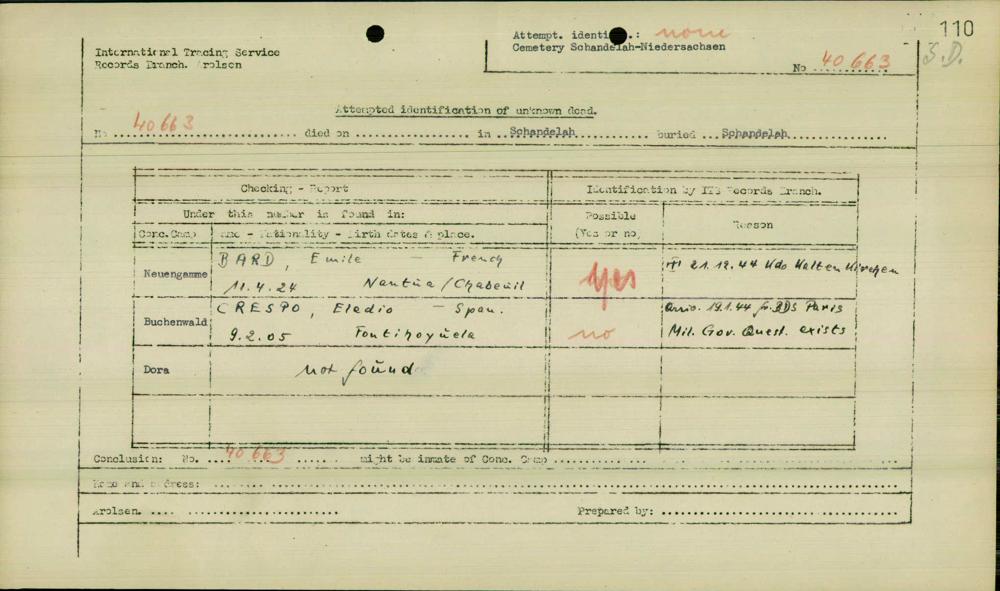 110
S.D.
International Tracing Service
Records Branch. Arolsen
Attempt. identi .: none
Cemetery Schandelah-Niedersachsen
No 40 663
Attempted identification of unknown dead.
No ... 40663 ... died on ... in ... Schandelah ... buried ... Schandelah ...
Checking - Report
Identification by ITS Records Branch.
Under this number is found in:
Possible
(Yes or no)
Reason
Conc.Camp
Name - Nationality - Birth dates & place.
Neuengamme
BARD, Emile - French
11.4.24 Nantua/Chabeuil
yes
21.12.44 Kdo Kaltenkirchen
Buchenwald
CRESPO, Eledio - Span.
9.2.05
no
19.1.44 BDS Paris
Mil. Gov. Quest. exists
Dora
not found
Conclusion: No. ... 40663 ... might be inmate of Conc. Camp ...
Name and address: ...
Arolsen. ...
Prepared by: ...